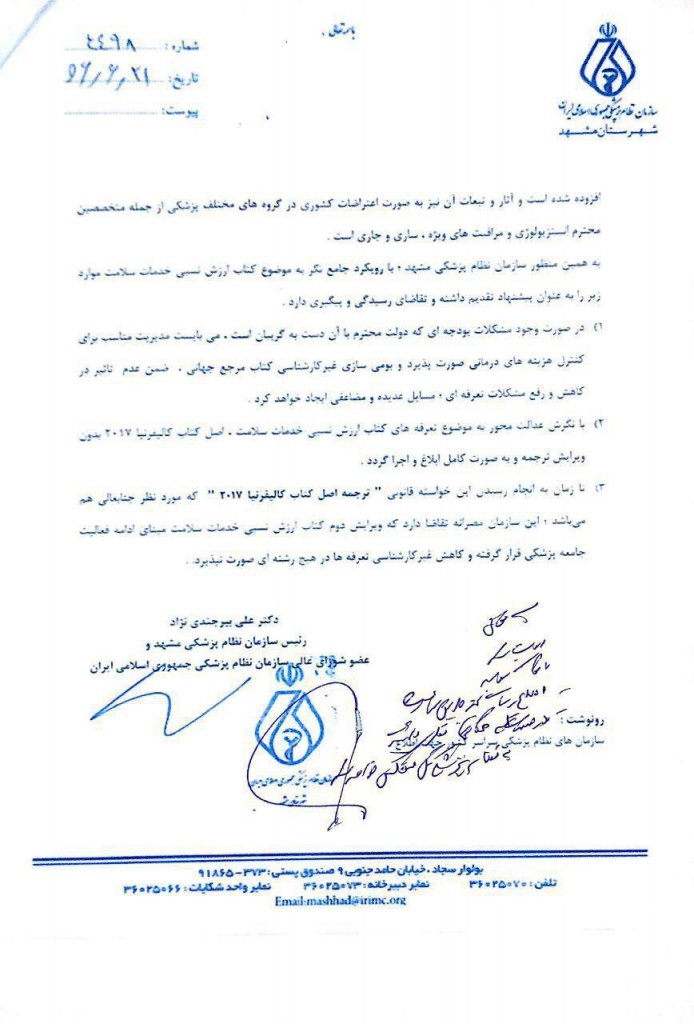 باسمه تعالی
شماره: ۲۴۹۸
تاریخ: ۹۶٫۶٫۲۱
پیوست:
سازمان نظام پزشکی جمهوری اسلامی ایران
شهرستان مشهد
افزوده شده است و آثار و تبعات آن نیز به صورت اعتراضات کشوری در گروه های مختلف پزشکی از جمله متخصصین
محترم آنستزیولوژی و مراقبت های ویژه ، ساری و جاری است .
به همین منظور سازمان نظام پزشکی مشهد ؛ با رویکرد جامع نگر به موضوع کتاب ارزش نسبی خدمات سلامت موارد
زیر را به عنوان پیشنهاد تقدیم داشته و تقاضای رسیدگی و پیگیری دارد .
۱) در صورت وجود مشکلات بودجه ای که دولت محترم با آن دست به گریبان است ، می بایست مدیریت مناسب برای
کنترل هزینه های درمانی صورت پذیرد و بومی سازی غیرکارشناسی کتاب مرجع جهانی ، ضمن عدم تاثیر در
کاهش و رفع مشکلات تعرفه ای ؛ مسایل عدیده و مضاعفی ایجاد خواهد کرد .
۲) با نگرش عدالت محور به موضوع تعرفه های کتاب ارزش نسبی خدمات سلامت ، اصل کتاب کالیفرنیا ۲۰۱۷ بدون
ویرایش ترجمه و به صورت کامل ابلاغ و اجرا گردد .
۳) تا زمان به انجام رسیدن این خواسته قانونی " ترجمه اصل کتاب کالیفرنیا ۲۰۱۷ " که مورد نظر جنابعالی هم
می‌باشد ؛ این سازمان مصرانه تقاضا دارد که ویرایش دوم کتاب ارزش نسبی خدمات سلامت مبنای ادامه فعالیت
جامعه پزشکی قرار گرفته و کاهش غیرکارشناسی تعرفه ها در هیچ رشته ای صورت نپذیرد. .
دکتر علی بیرجندی نژاد
رئیس سازمان نظام پزشکی مشهد و
عضو شورای عالی سازمان نظام پزشکی جمهوری اسلامی ایران
رونوشت :
سازمان های نظام پزشکی سراسر کشور جهت اطلاع
بولوار سجاد ، خیابان حامد جنوبی ۹ صندوق پستی : ۳۷۳-۹۱۸۶۵
تلفن : ۳۶۰۲۵۰۷۰ نمابر دبیرخانه : ۳۶۰۲۵۰۷۳ نمابر واحد شکایات : ۳۶۰۲۵۰۶۶
Email:mashhad@irimc.org